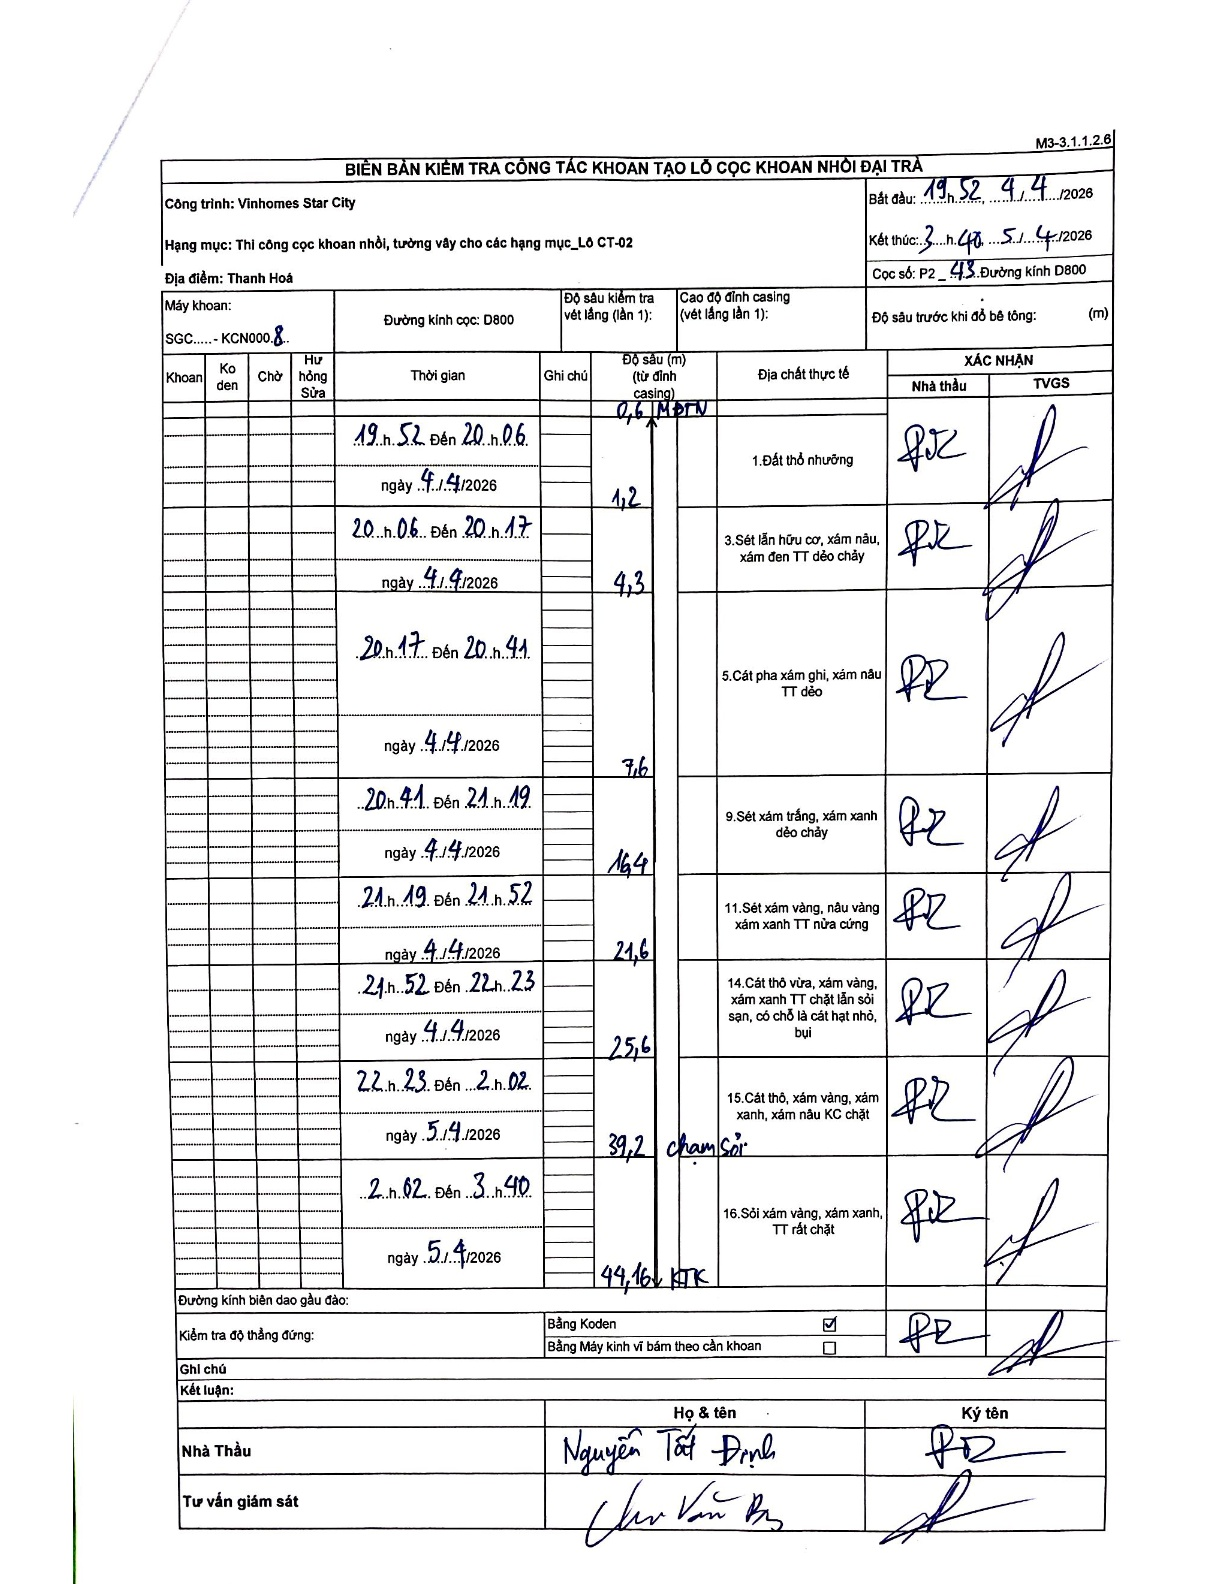 M3-3.1.1.2.6
BIÊN BẢN KIỂM TRA CÔNG TÁC KHOAN TẠO LỖ CỌC KHOAN NHỒI ĐẠI TRÀ
Công trình: Vinhomes Star City
Bắt đầu: 19h.52, 4/4/2026
Hạng mục: Thi công cọc khoan nhồi, tường vây cho các hạng mục_Lô CT-02
Kết thúc: 3h.40, 5/4/2026
Địa điểm: Thanh Hoá
Cọc số: P2_43.Đường kính D800
Máy khoan:
SGC.....- KCN000.8..
Đường kính cọc: D800
Độ sâu kiểm tra
vét lắng (lần 1):
Cao độ đỉnh casing
(vét lắng lần 1):
Độ sâu trước khi đổ bê tông: (m)
Khoan
Ko
den
Chờ
Hư
hỏng
Sửa
Thời gian
Ghi chú
Độ sâu (m)
(từ đỉnh
casing)
Địa chất thực tế
XÁC NHẬN
Nhà thầu
TVGS
0,6 MĐTN
19.h.52 Đến 20.h.06
ngày 4/4/2026
1,2
1.Đất thổ nhưỡng
20.h.06 Đến 20.h.17
ngày 4/4/2026
4,3
3.Sét lẫn hữu cơ, xám nâu,
xám đen TT dẻo chảy
20.h.17 Đến 20.h.41
ngày 4/4/2026
7,6
5.Cát pha xám ghi, xám nâu
TT dẻo
20.h.41 Đến 21.h.19
ngày 4/4/2026
16,4
9.Sét xám trắng, xám xanh
dẻo chảy
21.h.19 Đến 21.h.52
ngày 4/4/2026
21,6
11.Sét xám vàng, nâu vàng
xám xanh TT nửa cứng
21.h.52 Đến 22.h.23
ngày 4/4/2026
25,6
14.Cát thô vừa, xám vàng,
xám xanh TT chặt lẫn sỏi
sạn, có chỗ là cát hạt nhỏ,
bụi
22.h.23 Đến 2.h.02
ngày 5/4/2026
39,2 chạm sỏi
15.Cát thô, xám vàng, xám
xanh, xám nâu KC chặt
2.h.02 Đến 3.h.40
ngày 5/4/2026
44,16 KTK
16.Sỏi xám vàng, xám xanh,
TT rất chặt
Đường kính biên dao gầu đào:
Kiểm tra độ thẳng đứng:
Bằng Koden ☑
Bằng Máy kinh vĩ bám theo cần khoan ☐
Ghi chú
Kết luận:
Họ & tên
Ký tên
Nhà Thầu
Nguyễn Tất Định
Tư vấn giám sát
Văn